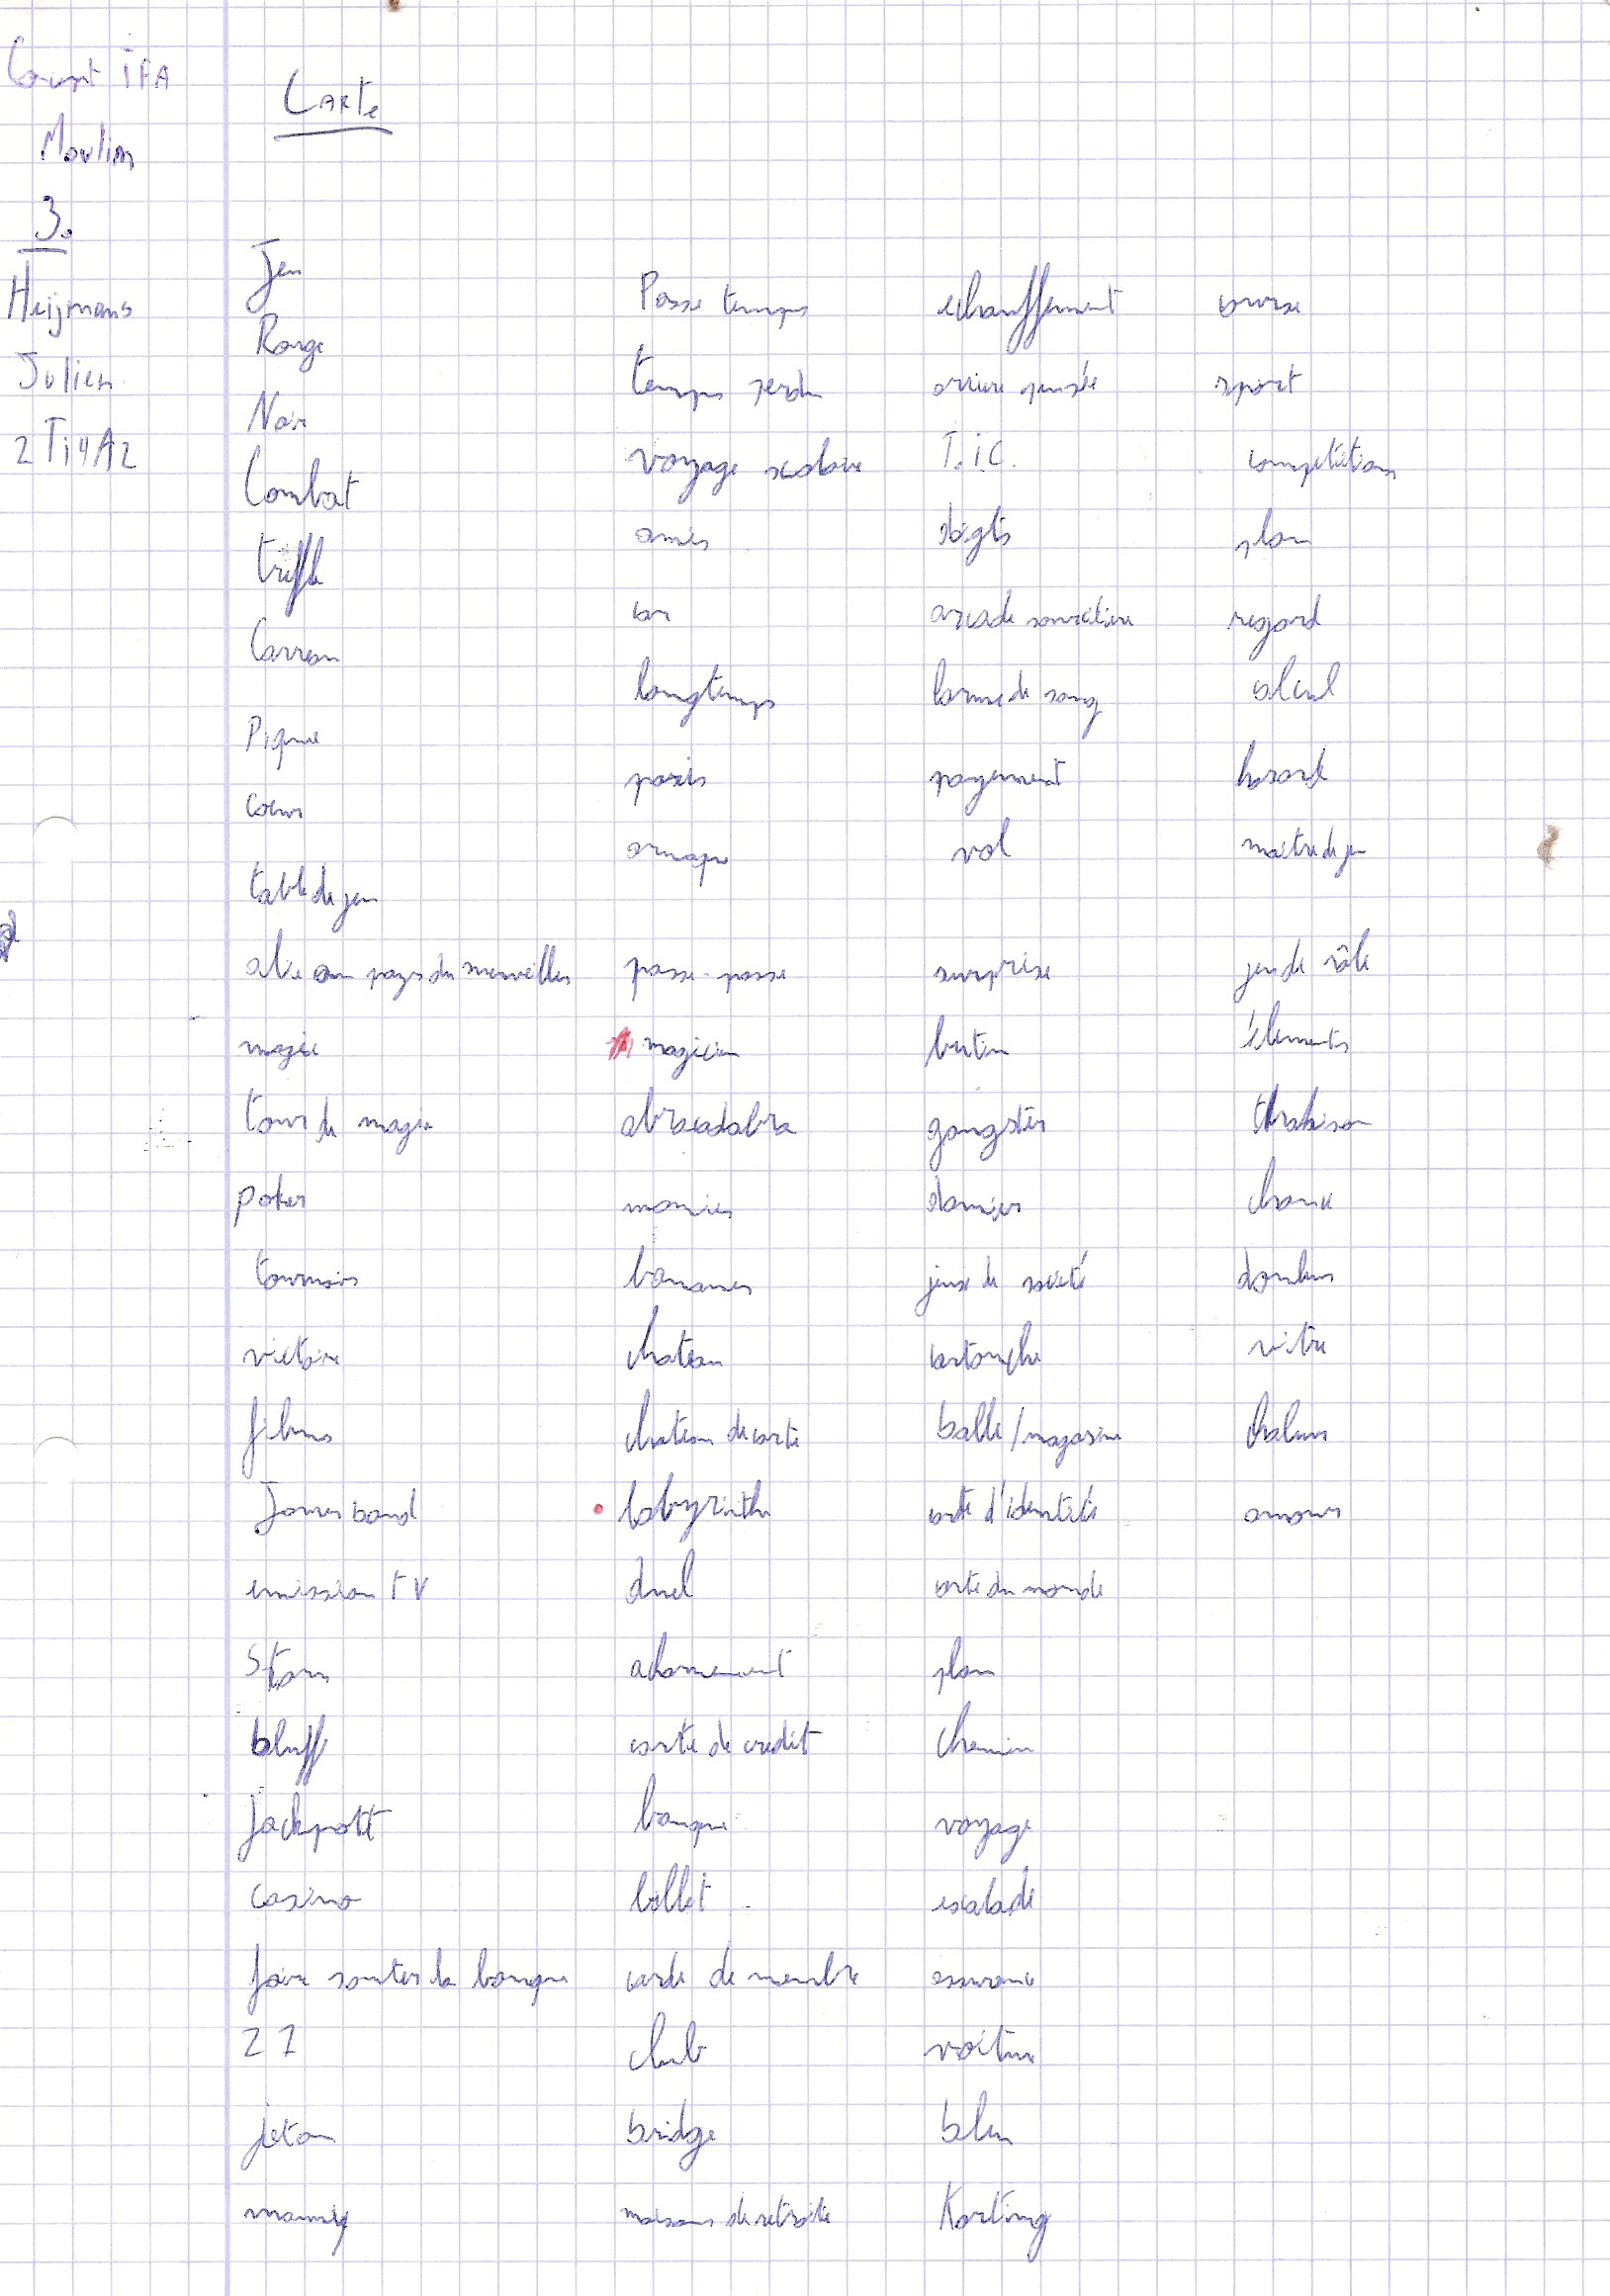 Concept IFA
Moulin
3.
Heijmans
Julien
2Ti4A2
Carte
Jeu
Rouge
Noir
Combat
treffle
Carreau
Pique
coeur
table de jeu
alice au pays du merveilles
magie
tour de magie
poker
tournois
victoire
films
James bond
emission TV
Stars
bluff
Jackpott
casino
faire sauter la banque
21
jeton
mamy
Passe temps
temps perdu
voyage scolaire
amis
car
longtemps
paris
arnaque
passe-passe
magicien
abracadabra
bananes
chateau
chateau de carte
labyrinthe
duel
acharnement
carte de credit
banque
billet
carde de membre
club
bridge
maisons de retraite
echauffement
arriere pensée
T.i.C.
doigts
arcade sourcilière
larme de sang
payement
vol
surprise
butin
gangster
damier
jeux de société
cartouche
balle/magasine
carte d'identité
carte du monde
plan
chemin
voyage
escalade
assurance
voiture
bleu
Karting
course
sport
compétitions
plan
regard
calcul
hasard
maitre de jeu
jeu de rôle
élements
chance
vitre
chaleur
amour